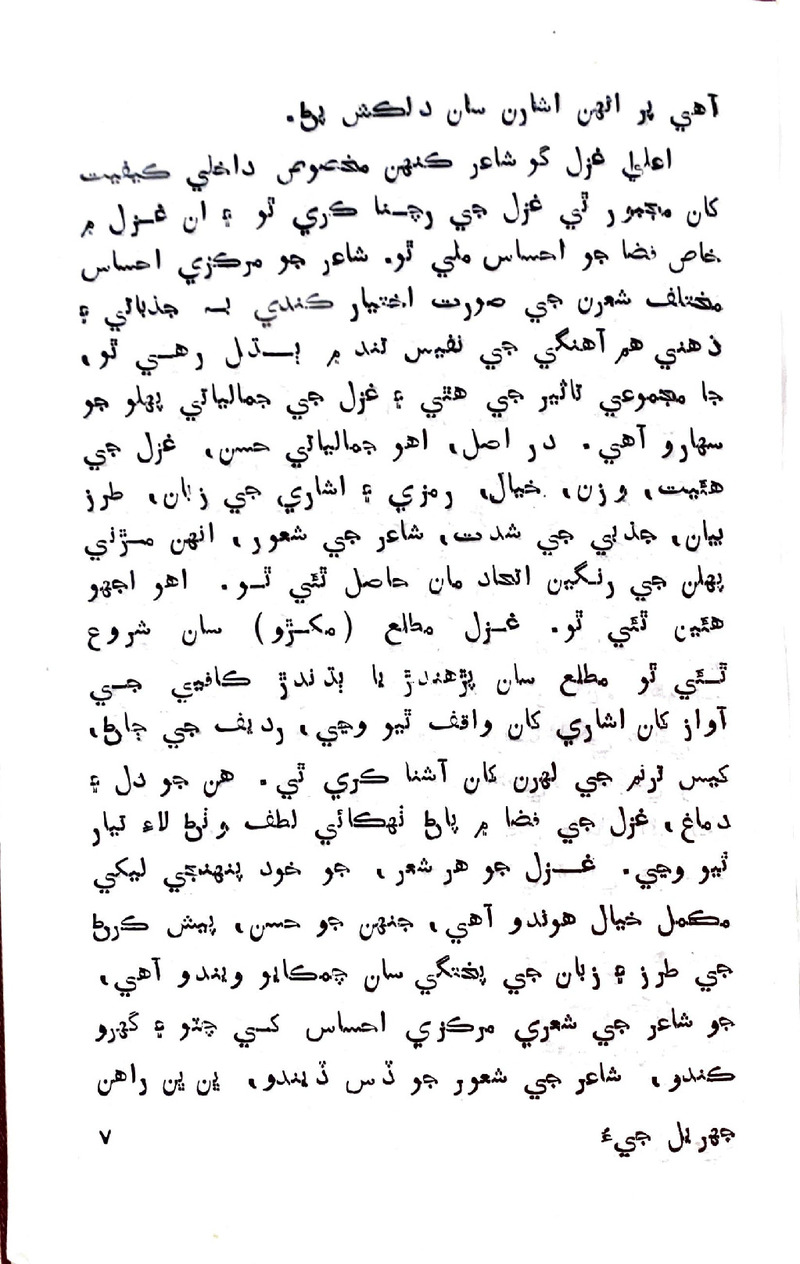 آهي پر انهن اشارن سان دلڪش پڻ.
اعليٰ غزل گو شاعر ڪنهن مخصوص داخلي ڪيفيت
کان مجبور ٿي غزل جي رچنا ڪري ٿو ۽ ان غزل ۾
خاص فضا جو احساس ملي ٿو. شاعر جو مرڪزي احساس
مختلف شعرن جي صورت اختيار ڪندي به جذباتي ۽
ذهني هم آهنگي جي نفيس تند ۾ ٻڌل رهي ٿو،
جا مجموعي تاثير جي هٿي ۽ غزل جي جمالياتي پهلو جو
سهارو آهي. در اصل، اهو جمالياتي حسن، غزل جي
هئيت، وزن، خيال، رمزي ۽ اشاري جي زبان، طرز
بيان، جذبي جي شدت، شاعر جي شعور، انهن مڙني
پهلن جي رنگين اتحاد مان حاصل ٿئي ٿو. اهو اجهو
هئين ٿئي ٿو. غزل مطلع (مکڙو) سان شروع
ٿئي ٿو مطلع سان پڙهندڙ يا ٻڌندڙ ڪافيي جي
آواز کان اشاري کان واقف ٿيو وڃي، رديف جي ڄاڻ،
کيس ترنم جي لهرن کان آشنا ڪري ٿي. هن جو دل ۽
دماغ، غزل جي فضا ۾ پاڻ ٺهڪائي لطف وٺڻ لاءِ تيار
ٿيو وڃي. غزل جو هر شعر، جو خود پنهنجي ليکي
مڪمل خيال هوندو آهي، جنهن جو حسن، پيش ڪرڻ
جي طرز ۽ زبان جي پختگي سان چمڪايو ويندو آهي،
جو شاعر جي شعري مرڪزي احساس کي چٽو ۽ گهرو
ڪندو، شاعر جي شعور جو ڏس ڏيندو، ٻن ٻن راهن
جهريل جيءُ ٧